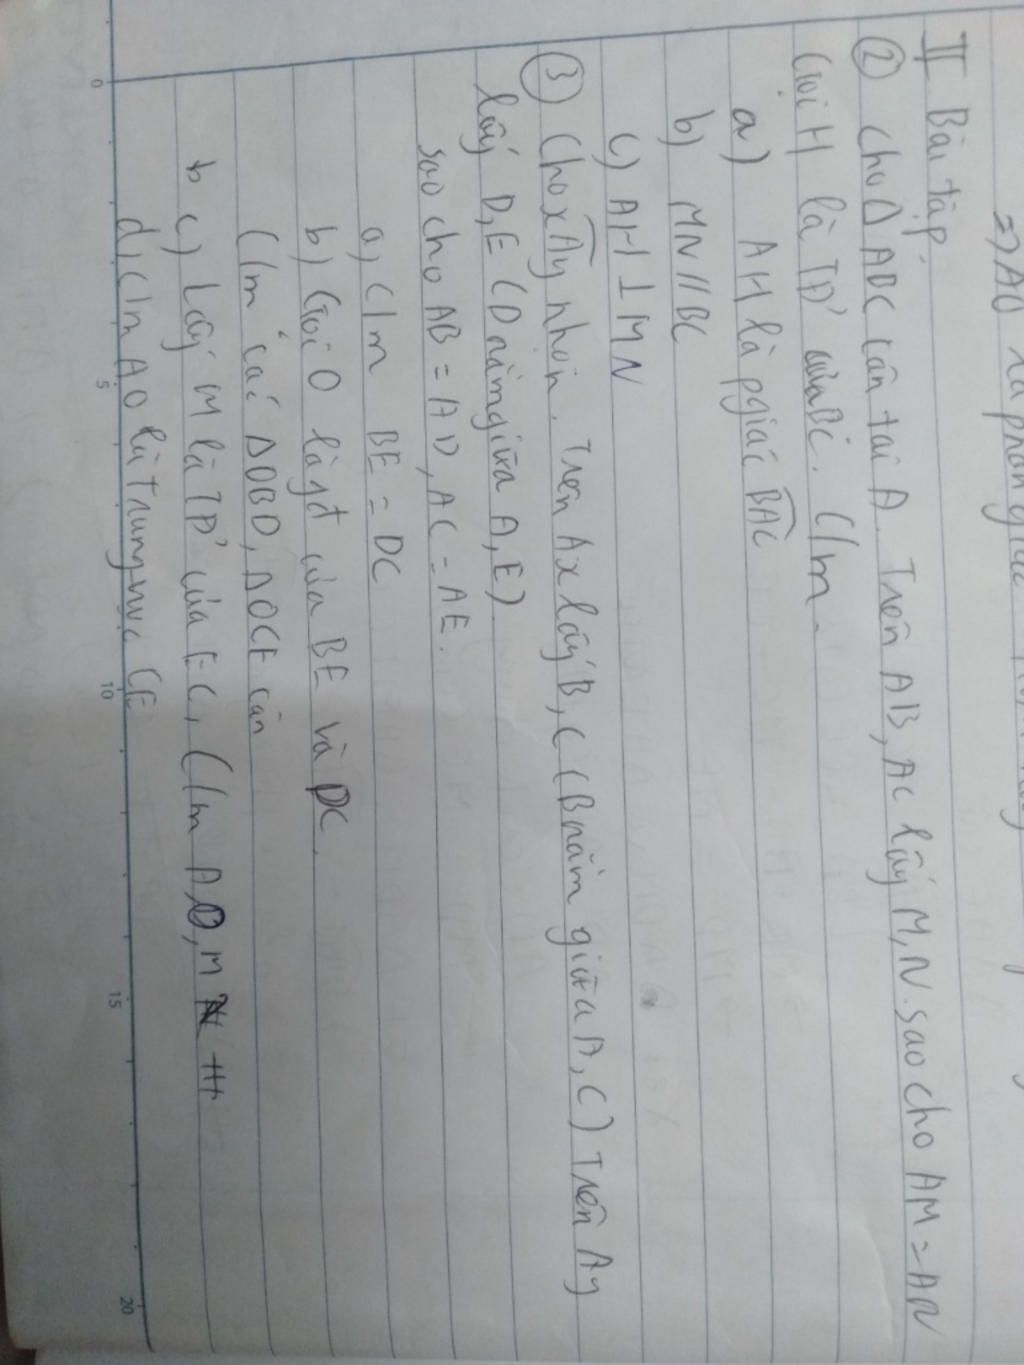 => AO là phân giác
II Bài tập
② Cho Δ ABC cân tại A. Trên AB, AC lấy M, N. sao cho AM = AN
Gọi H là TĐ' của BC. C/m.
a) AH là pgiác BAC
b) MN // BC
c) AH ⊥ MN
③ Cho xAy nhọn. Trên Ax lấy B, C (B nằm giữa A, C) Trên Ay
lấy D, E (D nằm giữa A, E)
sao cho AB = AD, AC = AE.
a, C/m BE = DC
b) Gọi O là gđ của BE và DC.
C/m các ΔOBD, ΔOCE cân
c) Lấy M là TĐ' của EC, C/m A, O, M TH
d, C/m AO là Trung trực CE
0 5 10 15 20